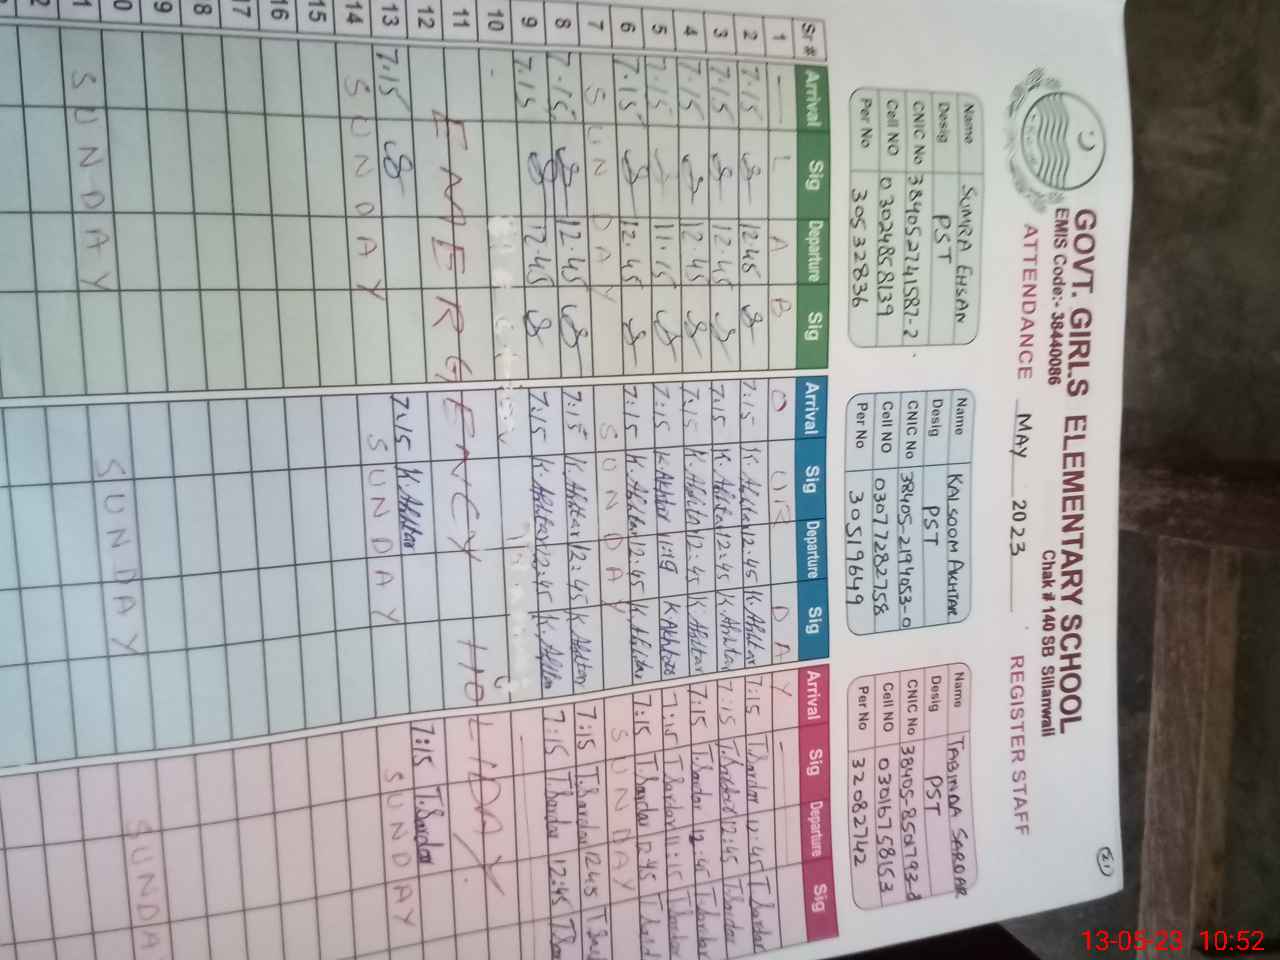 GOVT. GIRLS ELEMENTARY SCHOOL
EMIS Code:- 38440086 Chak # 140 SB Sillanwali
ATTENDANCE MAY 2023 REGISTER STAFF
21
Name SUMRA EHSAN
Desig PST
CNIC No 384052741587-2
Cell NO 03024858139
Per No 30532836
Name KALSOOM AKHTAR
Desig PST
CNIC No 38405-2194053-0
Cell NO 03077282758
Per No 30519649
Name TABINDA SARDAR
Desig PST
CNIC No 38405-8501793-8
Cell NO 03016758153
Per No 32082742
Sr # Arrival Sig Departure Sig Arrival Sig Departure Sig Arrival Sig Departure Sig
1 L A B O U R D A Y
2 7.15 12.45 7.15 K.Akhtar 12.45 K.Akhtar 7:15 T.Sardar 12:45 T.Sardar
3 7.15 12.45 7.15 K.Akhtar 12:45 K.Akhtar 7:15 T.Sardar 12:45 T.Sardar
4 7.15 12.45 7.15 K.Akhtar 12:45 K.Akhtar 7:15 T.Sardar 12:45 T.Sardar
5 7.15 11.15 7:15 K.Akhtar K.Akhtar 7:15 T.Sardar 11:15 T.Sardar
6 7.15 12.45 7:15 K.Akhtar 12:45 K.Akhtar 7:15 T.Sardar 12:45 T.Sard
7 SUNDAY SUNDAY SUNDAY
8 7.15 12.45 7:15 K.Akhtar 12:45 K.Akhtar 7:15 T.Sardar 12:45 T.Sar
9 7.15 12.45 7:15 K.Akhtar 12:45 K.Akhtar 7:15 T.Sardar 12:45 T.Sar
10
11 EMERGENCY HOLIDAY.
12
13 7.15 7.15 K.Akhtar 7:15 T.Sardar
14 SUNDAY SUNDAY SUNDAY
15
16
17
18
19
0
1 SUNDAY SUNDAY SUNDA
2
13-05-23 10:52